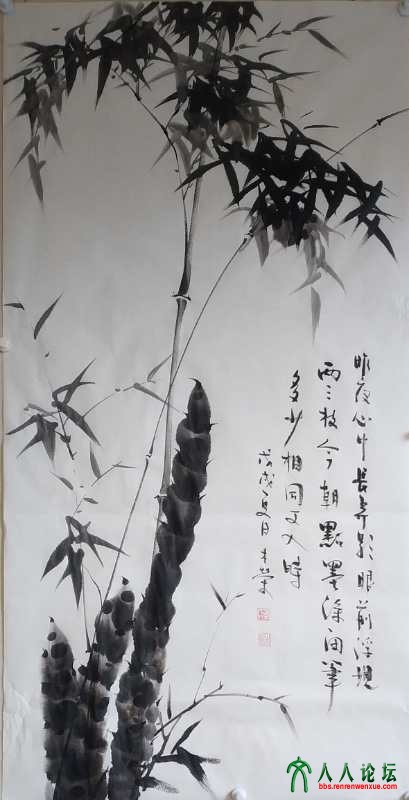 昨夜心中長弄影眼前浮現
两三枝今朝點墨深筆
多少相同又入時
戊戌夏日
人人论坛
bbs.renrenwenxue.com